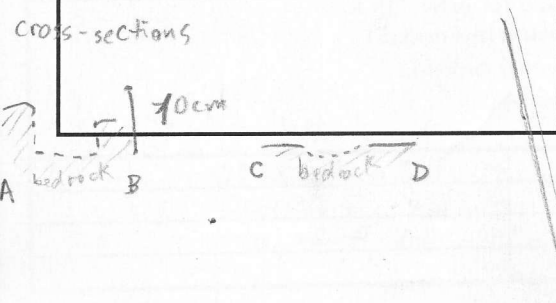 cross-sections
10cm
A bedrock B
C bedrock D